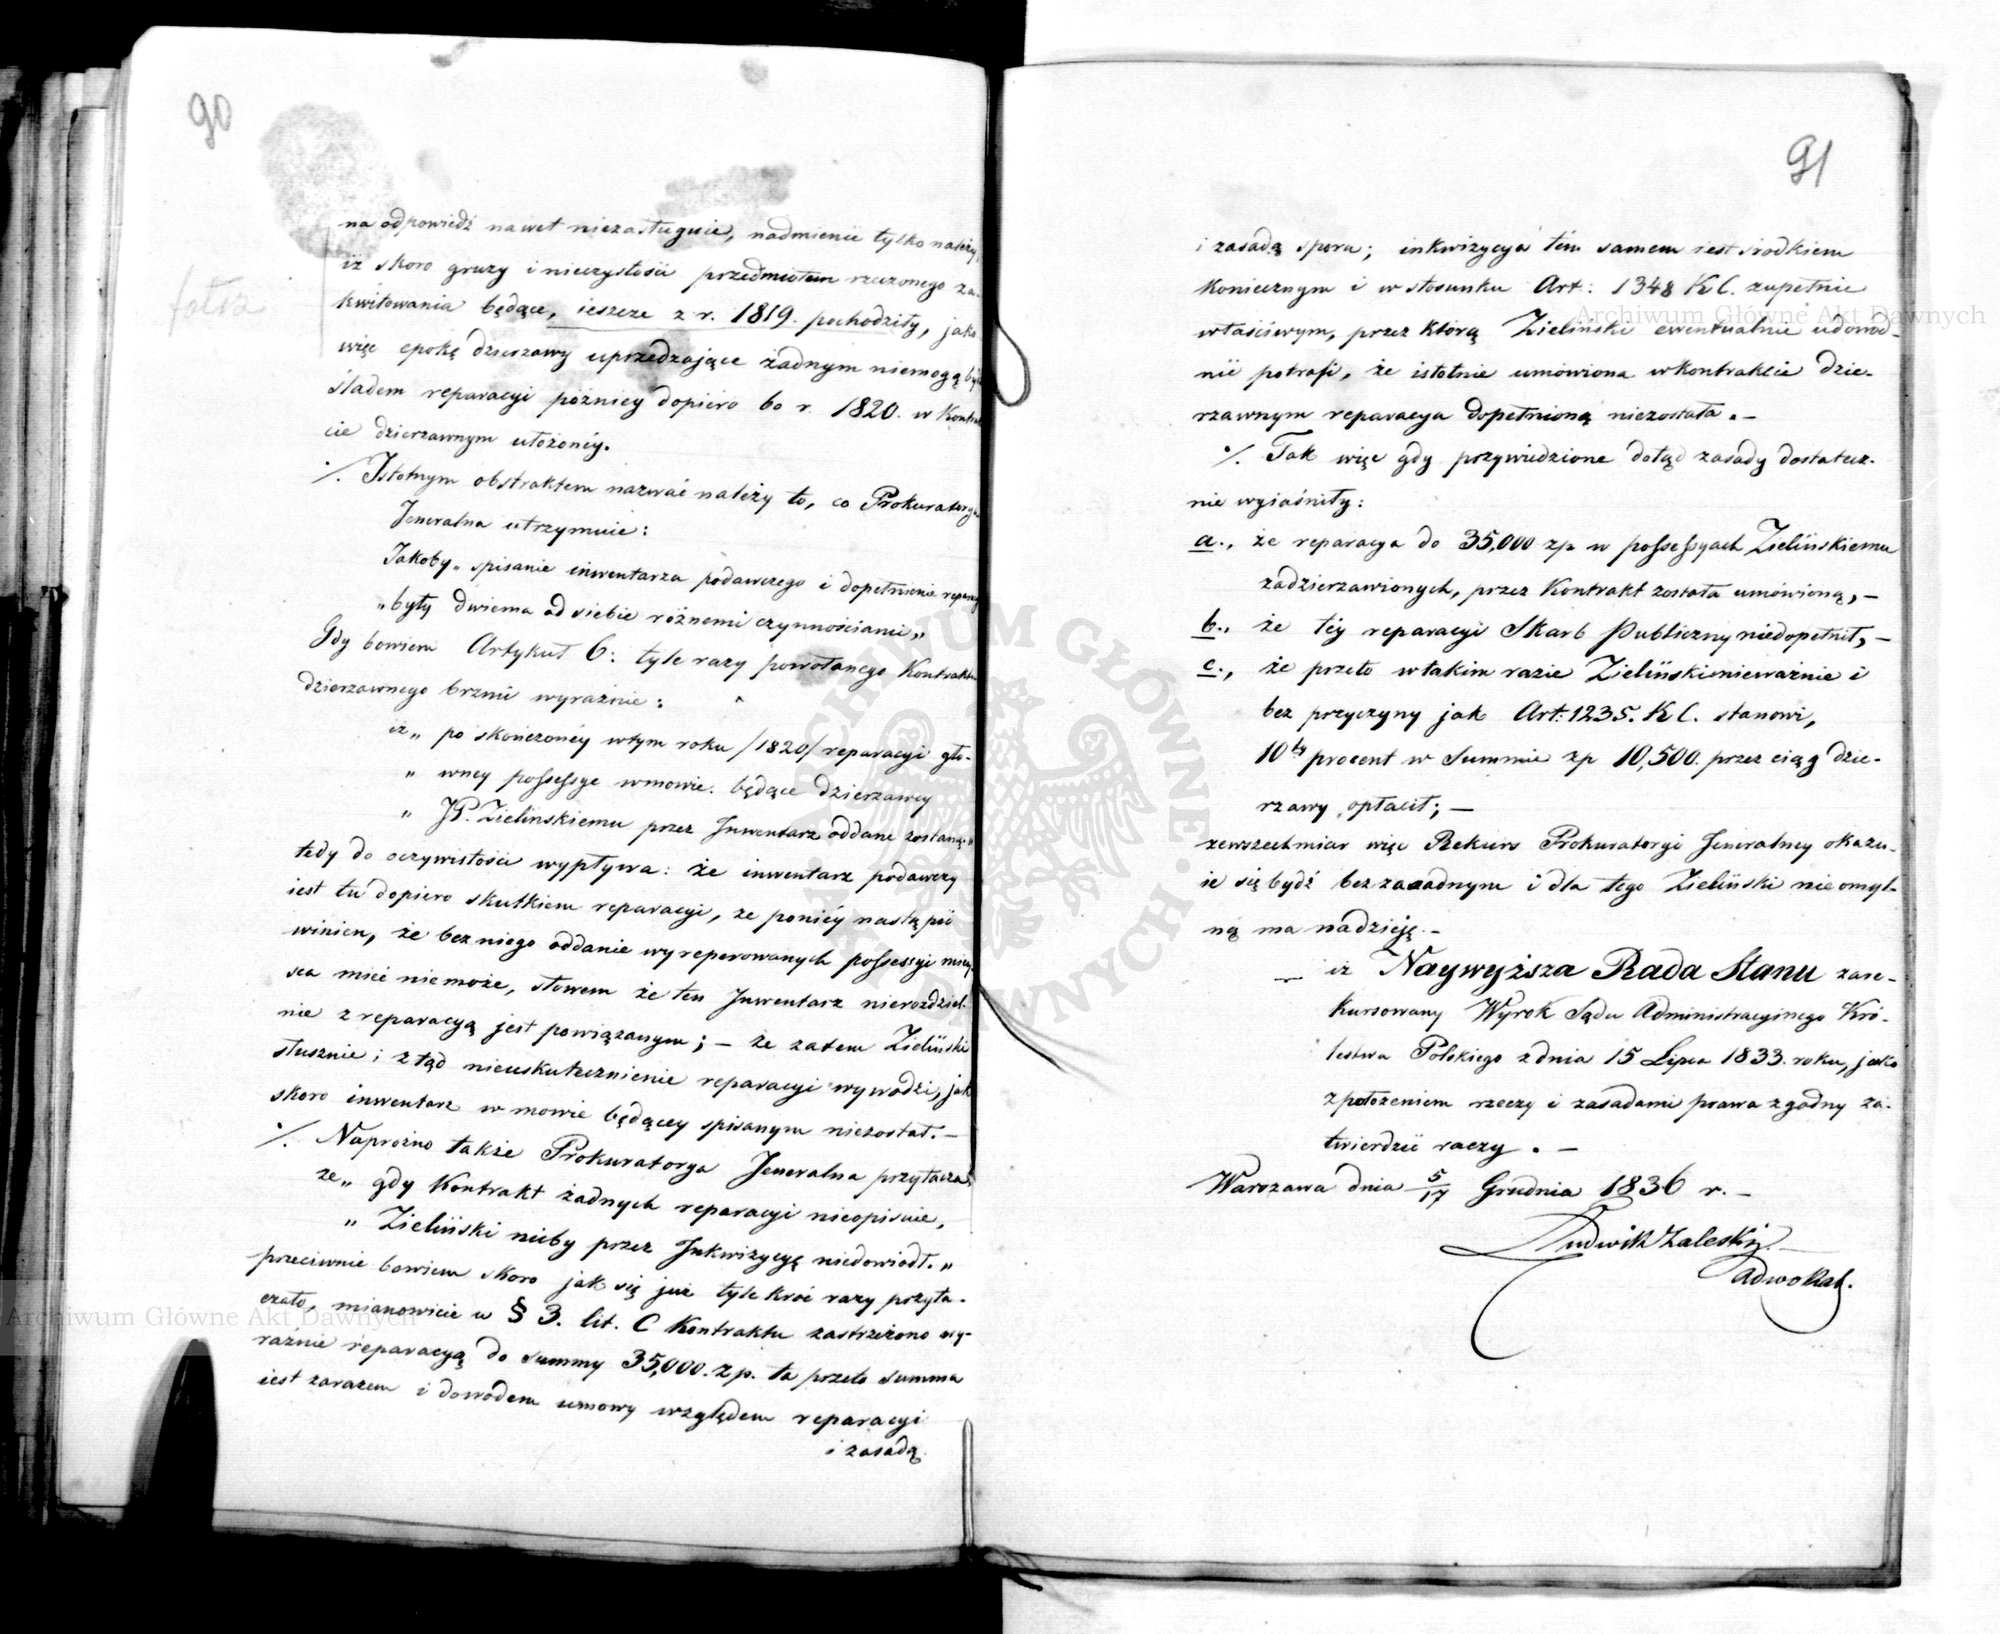 90
na odpowiedź nawet niezasługuie, nadmienić tylko należy,
iż skoro gruzy i nieczystości przedmiotem rzeczonego za-
kwitowania będące, ieszcze z r. 1819. pochodziły, jako
więc epokę dzierzawy uprzedzające żadnym niemogą być
śladem reparacyi późniey dopiero bo r. 1820. w Kontrak
cie dzierzawnym ułożonéy.
fałsz
./. Istotnym obstraktem nazwać należy to, co Prokuratorya
Jeneralna utrzymuie:
Jakoby „ spisanie inwentarza podawczego i dopełnienie reparacyi
„ były dwiema od siebie różnemi czynnościami „
Gdy bowiem Artykuł 6: tyle razy powołanego Kontraktu
dzierzawnego brzmi wyraźnie:
iż „ po skończonéy wtym roku /1820/ reparacyi głó-
„ wney possessye wmowie będące dzierzawcy
„ JP. Zielinskiemu przez Inwentarz oddane zostaną „
tedy do oczywistości wypływa: że inwentarz podawczy
iest tu dopiero skutkiem reparacyi, że poniéy nastąpić
winien, że bez niego oddanie wyreperowanych possessyi miey-
sca mieć niemoże, słowem że ten Inwentarz nierozdziel-
nie z reparacyą jest powiązanym; – że zatem Zieliński
słusznie i ztąd nieuskutecznienie reparacyi wywodzi, jak
skoro inwentarz w mowie będący spisanym niezostał. –
./. Napróżno także Prokuratorya Jeneralna przytacza
że „ gdy Kontrakt żadnych reparacyi nieopisuie,
„ Zieliński nicby przez Inkwizycyę niedowiodł. „
przeciwnie bowiem skoro jak się już tyle kroć razy przyta-
czało, mianowicie w § 3. lit. C Kontraktu zastrzeżono wy-
raźnie reparacyą do summy 35,000. zp. ta przeto summa
iest zarazem i dowodem umowy względem reparacyi
i zasadą
91
i zasadą sporu; inkwizycya tém samem iest srodkiem
koniecznym i w stosunku Art: 1348 K C. zupełnie
właściwym, przez którą Zieliński ewentualnie udowod-
nić potrafi, że istotnie umówiona w kontrakcie dzie-
rzawnym reparacya dopełnioną niezostała. –
./. Tak więc gdy przywiedzione dotąd zasady dostatecz-
nie wyiaśniły:
a., że reparacya do 35,000 zp w possessyach Zielińskiemu
zadzierzawionych, przez Kontrakt została umówioną, –
b., że téy reparacyi Skarb Publiczny niedopełnił, –
c., że przeto w takim razie Zieliński nieważnie i
bez przyczyny jak Art: 1235. K C. stanowi,
10ty procent w Summie zp 10,500. przez ciąg dzie-
rzawy opłacił; –
zewszechmiar więc Rekurs Prokuratoryi Jeneralney okazu-
ie się bydź bezzasadnym i dla tego Zieliński nieomyl-
ną ma nadzieję –
– iż Naywyższa Rada Stanu zare-
kursowany Wyrok Sądu Administracyinego Kró-
lestwa Polskiego z dnia 15 Lipca 1833. roku, jako
z położeniem rzeczy i zasadami prawa zgodny za-
twierdzić raczy. –
Warszawa dnia 5/17 Grudnia 1836 r. –
Ludwik Zaleski
Adwokat.
Archiwum Główne Akt Dawnych
Archiwum Główne Akt Dawnych
ARCHIWUM GŁÓWNE AKT DAWNYCH